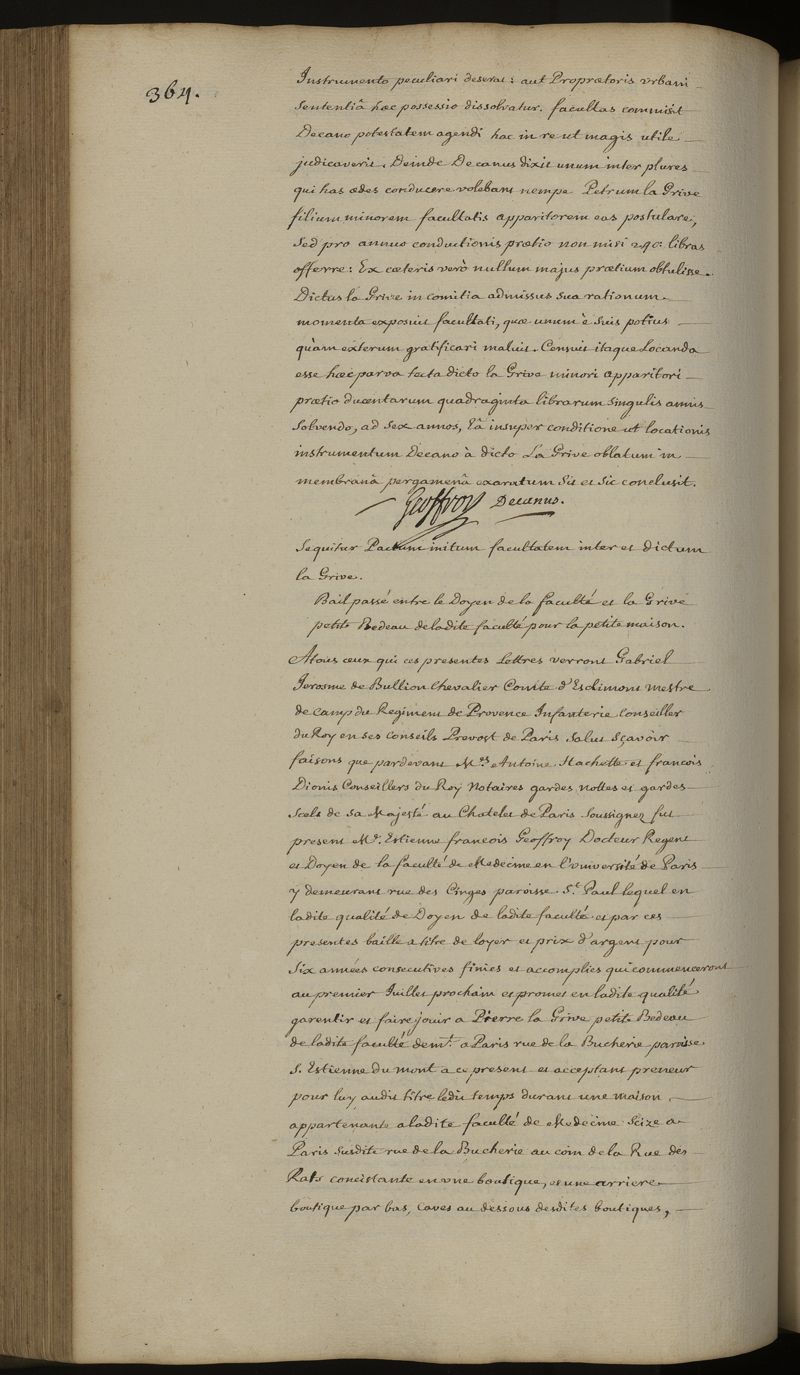 364.
Instrumento peculiari deserat : aut Proprætoris urbani
Sententiâ hæc possessio dissolvatur. facultas commisit
Decano potestatem agendi hac in re ut magis utile
judicaverit. Deinde Decanus dixit unum inter plures
qui has ædes conducere volebant nempe Petrum la Grive
filium minorem facultatis apparitorem eas postulare,
Sed pro annuo conductionis prætio non nisi 240 libras
offerre : Ex cæteris verò nullum majus prætium obtulisse.
Dictus la Grive in comitia admissus sua rationum
momenta exposuit facultati, quæ unum è suis potius
quàm exterum gratificari maluit. Censuit itaque Locanda
esse hæc parva tecta dicto la Grive minori apparitori
prætio ducentarum quadraginta librarum singulis annis
Solvendo, ad Sex annos, Eâ insuper conditione ut locationis
instrumentum Decano à dicto La Grive oblatum in
membranâ pergamenâ exaratum Sit et Sic conclusit.
Geoffroy Decanus.
Sequitur Pactum initum facultatem inter et dictum
la Grive.
Bail passé entre le Doyen de la faculté et la Grive
petit Bedeau de ladite faculté pour la petite maison.
A tous ceux qui ces presentes Lettres verront Gabriel
Jerosme de Bullion Chevalier Comte d'Esclimont Mestre
de Camp du Regiment de Provence Infanterie Conseiller
du Roy en ses Conseils Prevost de Paris Salut Sçavoir
faisons que pardevant M.es Antoine Hachette et francois
Dionis Conseillers du Roy Notaires gardes nottes et gardes
Scels de Sa Majesté au Chatelet de Paris Soussignez fut
present M.e Estienne francois Geoffroy Docteur Regent
et Doyen de la faculté de Medecine en l'université de Paris
y demeurant rue des Singes paroisse S.t Paul lequel en
ladite qualité de Doyen de ladite faculté et par ces
presentes baille a titre de loyer et prix d'argent pour
Six années consecutives finies et accomplies qui commenceront
au premier Juillet prochain et promet en ladite qualité
garentir et faire jouir a Pierre la Grive petit Bedeau
de ladite faculté dem.t a Paris rue de la Bucherie paroisse
S. Estienne du mont a ce present et acceptant preneur
pour luy audit titre ledit temps durant une maison
appartenante a ladite faculté de Medecine Scize a
Paris Susdite rue de la Bucherie au coin de la Rue des
Rats concistante en une boutique, et une arriere
boutique par bas, Caves au dessous desdites boutiques,